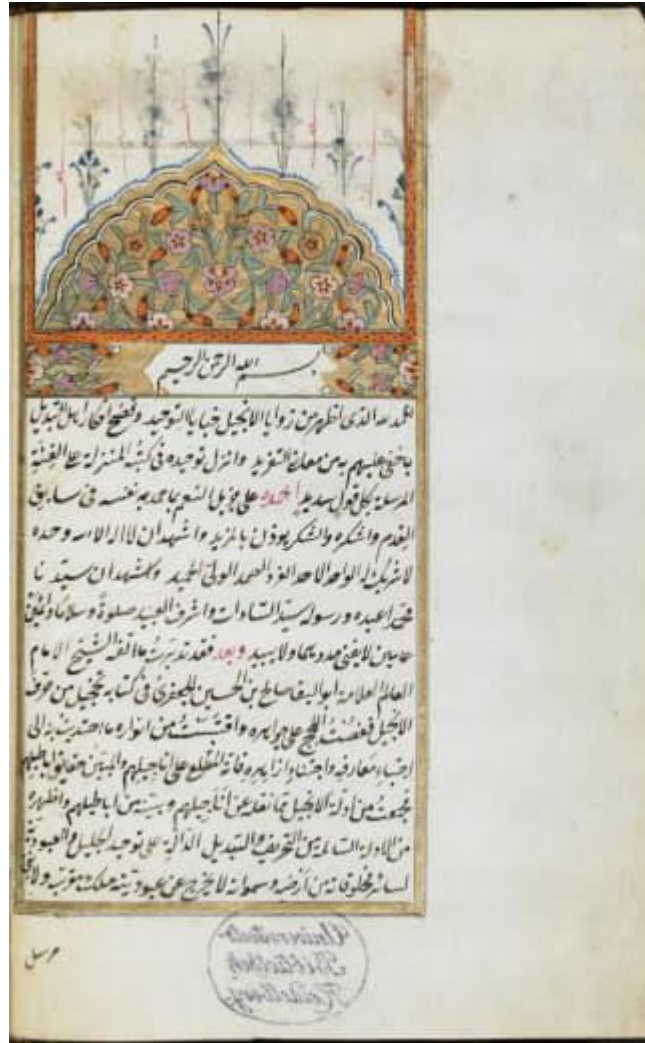 بسم الله الرحمن الرحيم
الحمد لله الذى اظهر من زوايا الانجيل خبايا التوحيد وفضح افكار اهل التبديل
بما خفى عليهم به من معانى التفريد وانزل توحيده فى كتبه المنزلة على
المرسلة بكل قول سديد احمده على جزيل النعم بما حمد به نفسه فى سابق
القدم واشكره والشكر يوذن بالمزيد واشهد ان لا اله الا الله وحده
لا شريك له الواحد الاحد الفرد الصمد الولى الحميد واشهد ان سيدنا
محمدا عبده ورسوله سيد السادات واشرف العبيد صلوة وسلاما دائمين
لا يفنى مددهما ولا يبيد وبعد فقد تدبرت ما الفه الشيخ الامام
العالم العلامة ابو البقا صالح بن الحسين الجعفرى فى كتابه تخجيل من حرف
الانجيل فغصت اللجج على جواهره واقتبست من انواره ما اهتديت به الى
اجتناء معارفه واجتناء ازاهره فانه المطلع على اناجيلهم والمبين حقايق اباطيلهم
من ادلة الانجيل مما نقله عن اناجيلهم وبينه من اباطيلهم واظهره
من الادلة السالمة من التحريف والتبديل الدالة على توحيد الجليل والعبودية
لسائر مخلوقاته من ارضه وسمواته لا يخرج عن عبوديته ملك مقرب ولا نبى
مرسل
Universitäts
Bibliothek
Heidelberg